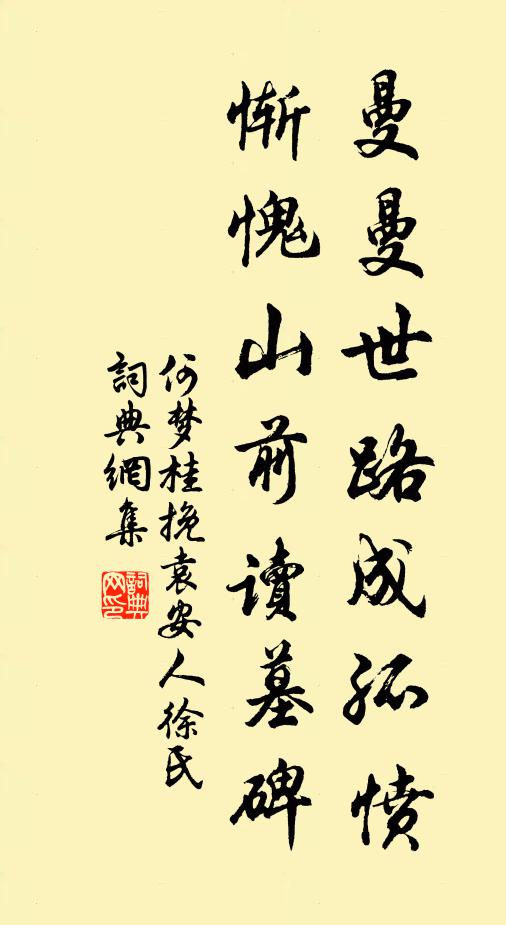 曼曼世路成孤愤
惭愧山前读墓碑
何梦桂挽袁安人徐氏
詞典網集
詞典网印